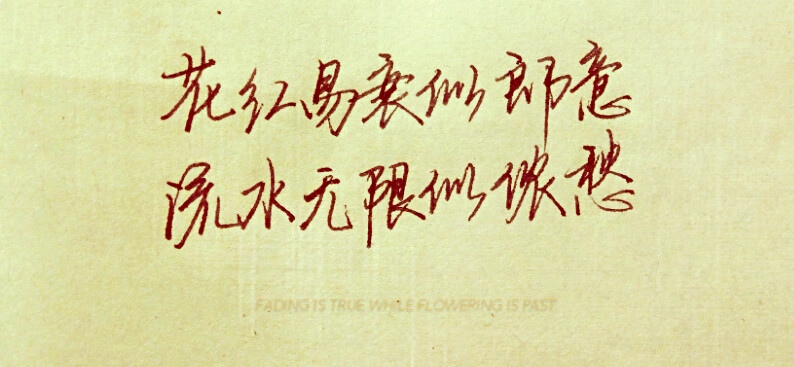 花红易衰似郎意
流水无限似侬愁
FADING IS TRUE WHILE FLOWERING IS PAST